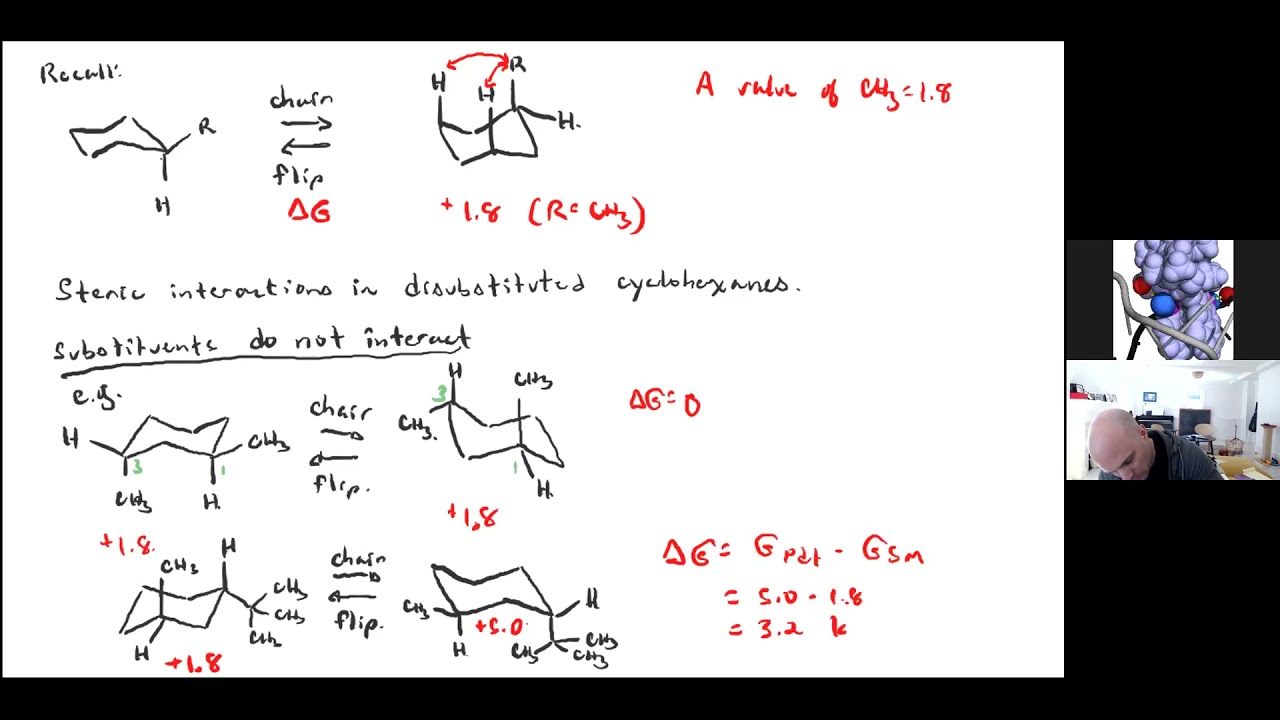 Recall:
R
H
chair
flip
ΔG
H
H
R
H.
+1.8 (R=CH3)
A value of CH3=1.8
Steric interactions in disubstituted cyclohexanes.
Substituents do not interact
e.g.
H
3
1
CH3
CH3
H.
+1.8
chair
flip.
H
3
CH3.
CH3
1
H.
+1.8
ΔG=0
CH3
H
CH3
CH3
CH3
H
+1.8
chair
flip.
CH3
H
+5.0
H
CH3
CH3
CH3
ΔG= Gpdt - GSM
= 5.0 - 1.8
= 3.2 k